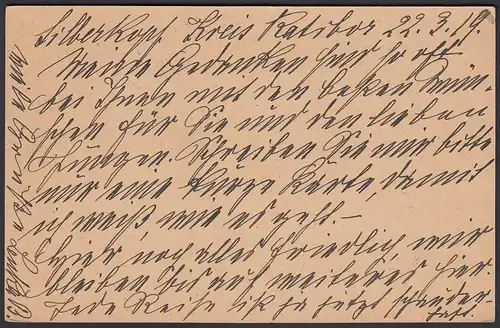 Silberkopf Kreis Ratibor 22.3.19.
Meine Gedanken sind so oft
bei Ihnen mit den besten Wün-
schen für Sie und den lieben
Jungen. Schreiben Sie mir bitte
nur eine kurze Karte, damit
ich weiß, wie es geht. –
Hier noch alles friedlich, wir
bleiben bis auf weiteres hier.
Jede Reise ist ja jetzt schauder-
haft.